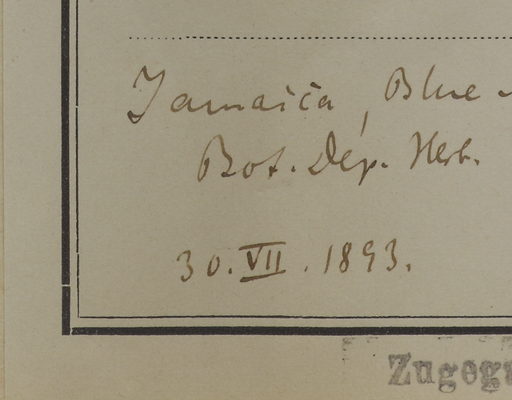 Jamaica, Blue
Bot. Dep. Herb.
30. VII. 1893.
Zugeg